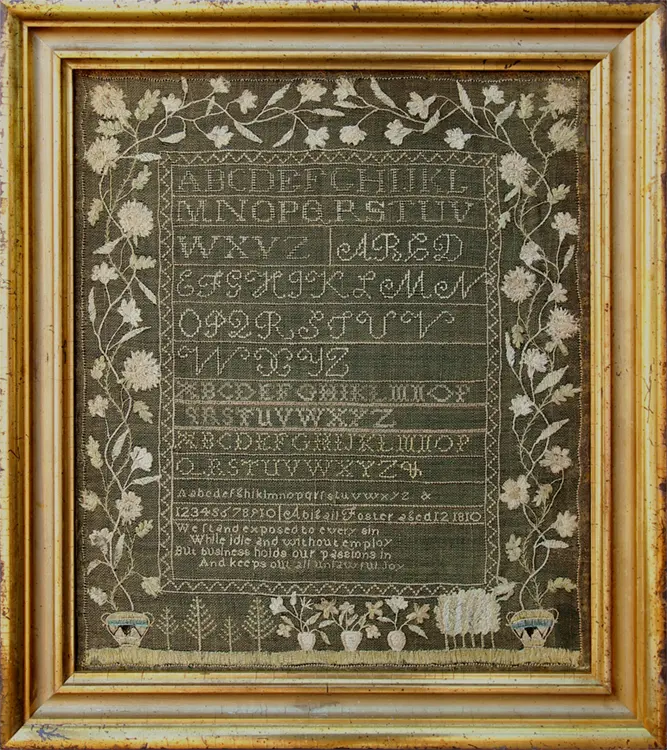 ABCDEFGHIJKL
MNOPQRSTUV
WXYZ ABCD
EFGHIJKLMN
OPQRSTUV
WXYZ
ABCDEFGHIKLMNOP
QRSTUVWXYZ
ABCDEFGHIJKLMNOP
QRSTUVWXYZ &
Aabcdefghiklmnopqrſstuvwxyz &
12345678910 Abigail Foster aged 12 1810
We stand exposed to every sin
While idle and without employ
But business holds our passions in
And keeps out all unlawful joy